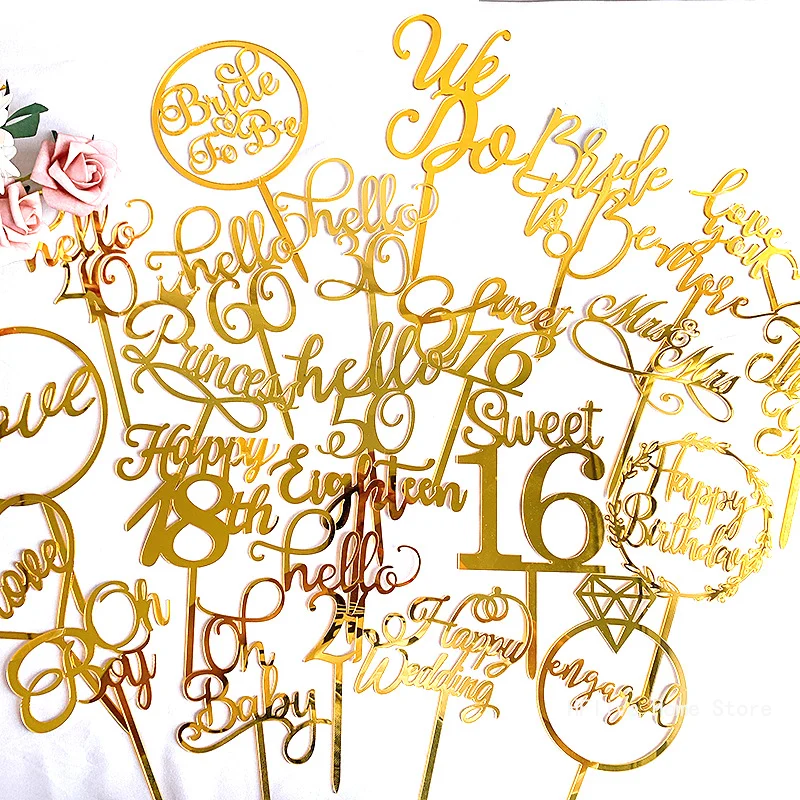 Bride
To Be
We
Do
Bride
to Be
love
you
more
hello
40
hello
60
hello
30
Sweet
16
Mrs &
Mrs
Princess
hello
50
Love
Happy
18th
Eighteen
Sweet
16
Happy
Birthday
Love
Oh
Boy
Oh
Baby
hello
Happy
Wedding
engaged
Store